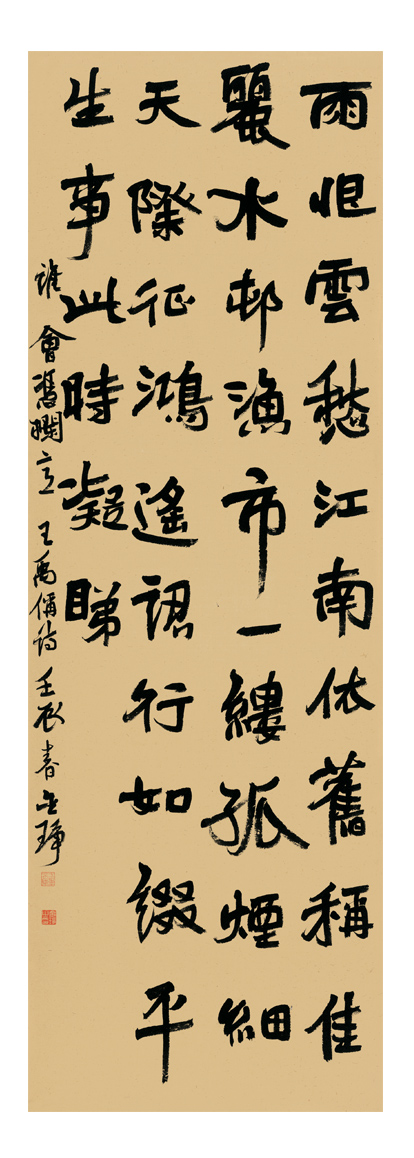 雨恨雲愁江南依舊稱佳
麗水邨漁市一縷孤煙細
天際征鴻遙認行如綴平
生事此時凝睇
誰會馮欄意 王禹偁詩 壬辰春